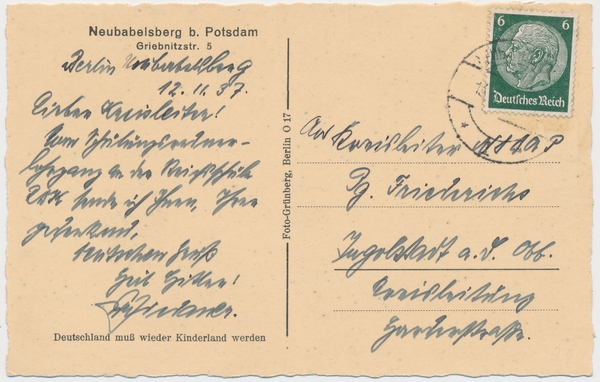 Neubabelsberg b. Potsdam
Griebnitzstr. 5
Berlin Neubabelsberg
12.11.37.
Lieber Kreisleiter!
Vom Schulungsredner-
lehrgang an der Reichsschule
RDK sende ich Ihnen, Ihrer
gedenkend,
deutschen Gruß
Heil Hitler!
Deutschland muß wieder Kinderland werden
Foto-Grünberg, Berlin O 17
6 6
Deutsches Reich
An Kreisleiter NSDAP
Pg. Friederichs
Ingolstadt a.d. Ob.
Kreisleitung
Harderstraße.